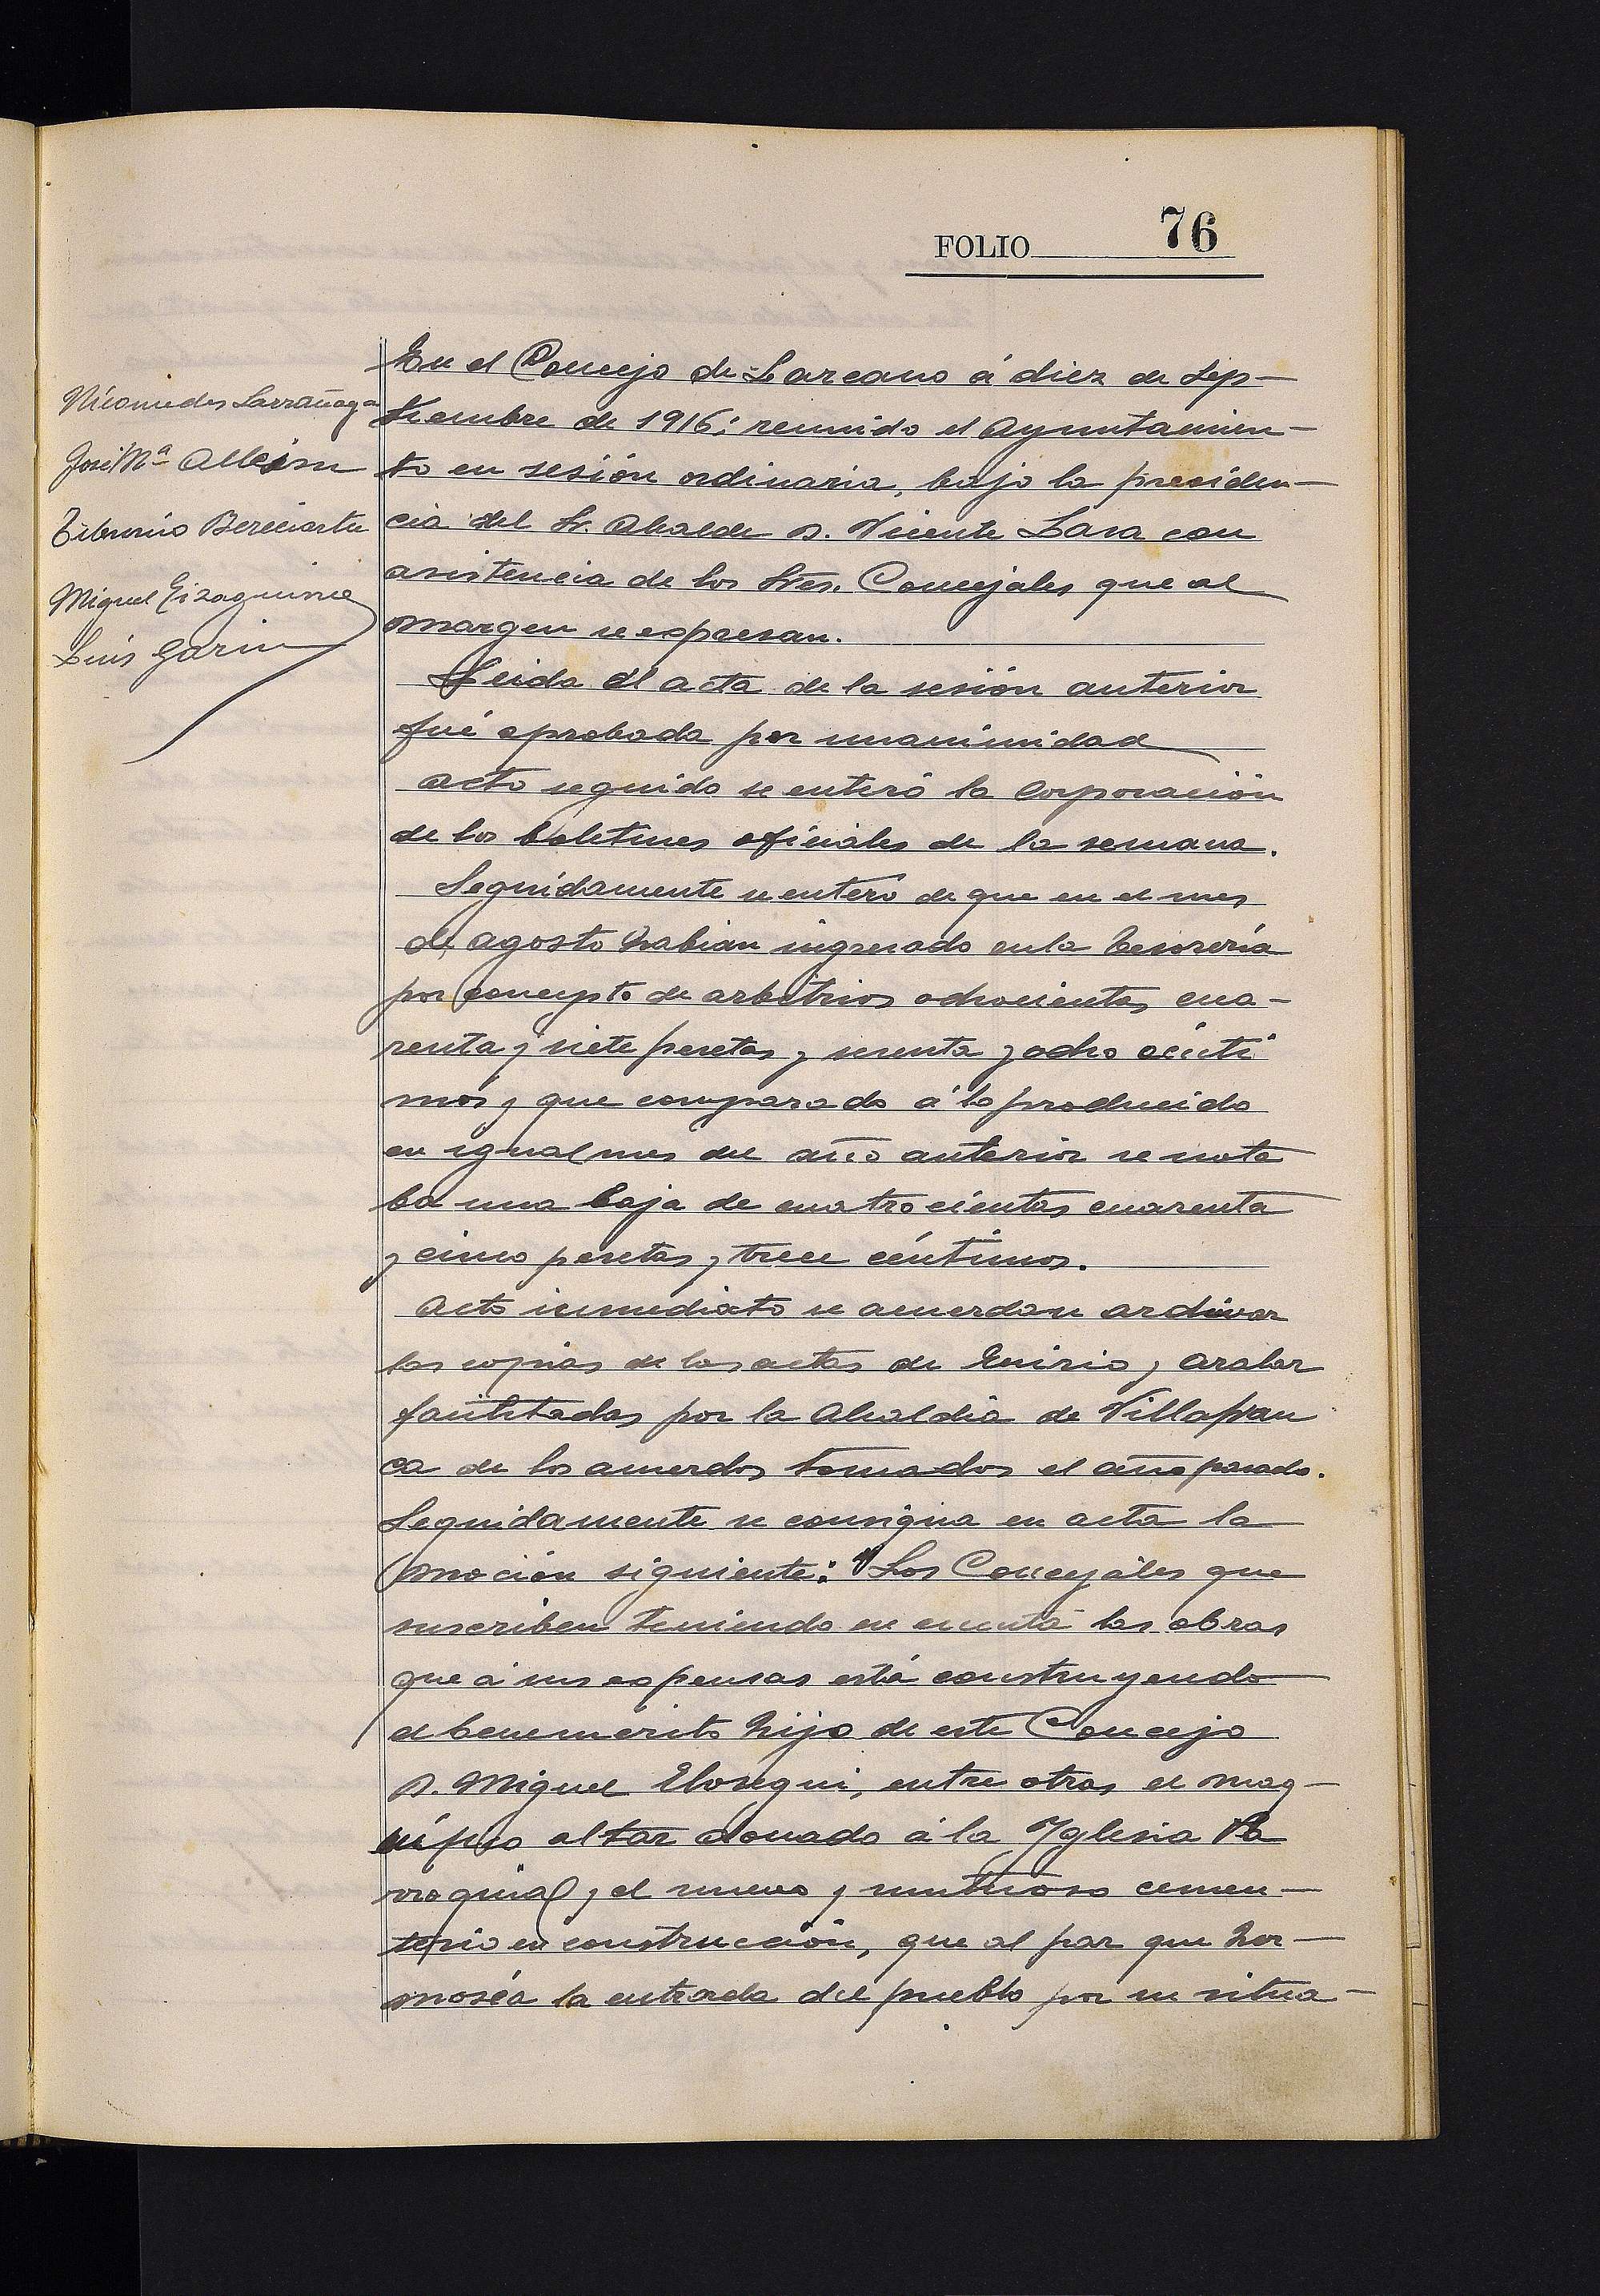 FOLIO 76
Nicomedes Larrañaga
José Mª
Tiburcio Bereciartu
Miguel Eizaguirre
Luis Garin
En el Concejo de Lazcano á diez de Sep-
tiembre de 1916; reunido el Ayuntamien-
to en sesión ordinaria, bajo la presiden-
cia del Sr. Alcalde D. Vicente Lasa con
asistencia de los Sres. Concejales que al
margen se expresan.
Leida el acta de la sesión anterior
fué aprobada por unanimidad
Acto seguido se enteró la Corporación
de los boletines oficiales de la semana.
Seguidamente se enteró de que en el mes
de agosto habian ingresado en la tesorería
por concepto de arbitrios ochocientas cua-
renta y siete pesetas y y ocho cénti
mos y que comparado á lo producido
en igual mes del año anterior se nota
ba una baja de cuatrocientas cuarenta
y cinco pesetas y trece céntimos.
Acto inmediato se acuerdan archivar
las copias de las actas de Enirio y Aralar
facilitadas por la Alcaldia de Villafran
ca de los acuerdos tomados el año pasado.
Seguidamente se consigna en acta la
moción siguiente: "Los Concejales que
suscriben teniendo en cuenta las obras
que á sus expensas está construyendo
el benemérito hijo de este Concejo
D. Miguel Elosegui, entre otras el mag-
nífico altar donado á la Yglesia Pa
rroquial y el nuevo y suntuoso cemen-
terio en construcción, que al par que her-
mosea la entrada del pueblo por su situa-